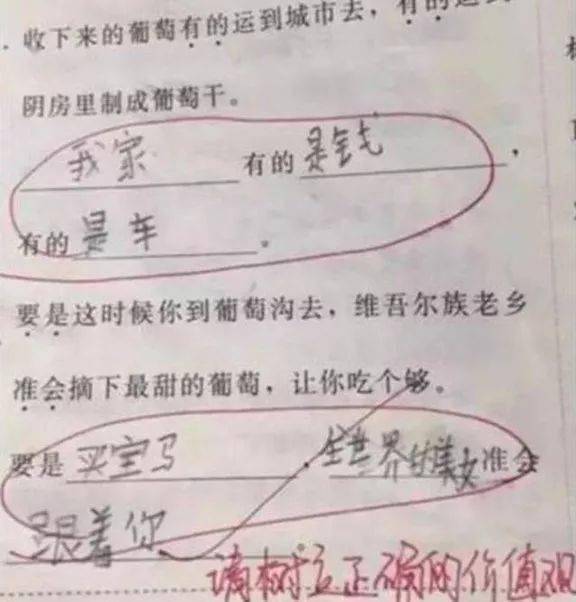 . 收下来的葡萄有的运到城市去，有的运到
阴房里制成葡萄干。
我家有的是钱，
有的是车。
要是这时候你到葡萄沟去，维吾尔族老乡
准会摘下最甜的葡萄，让你吃个够。
要是买宝马，全世界的美女准会
跟着你
请树立正确的价值观